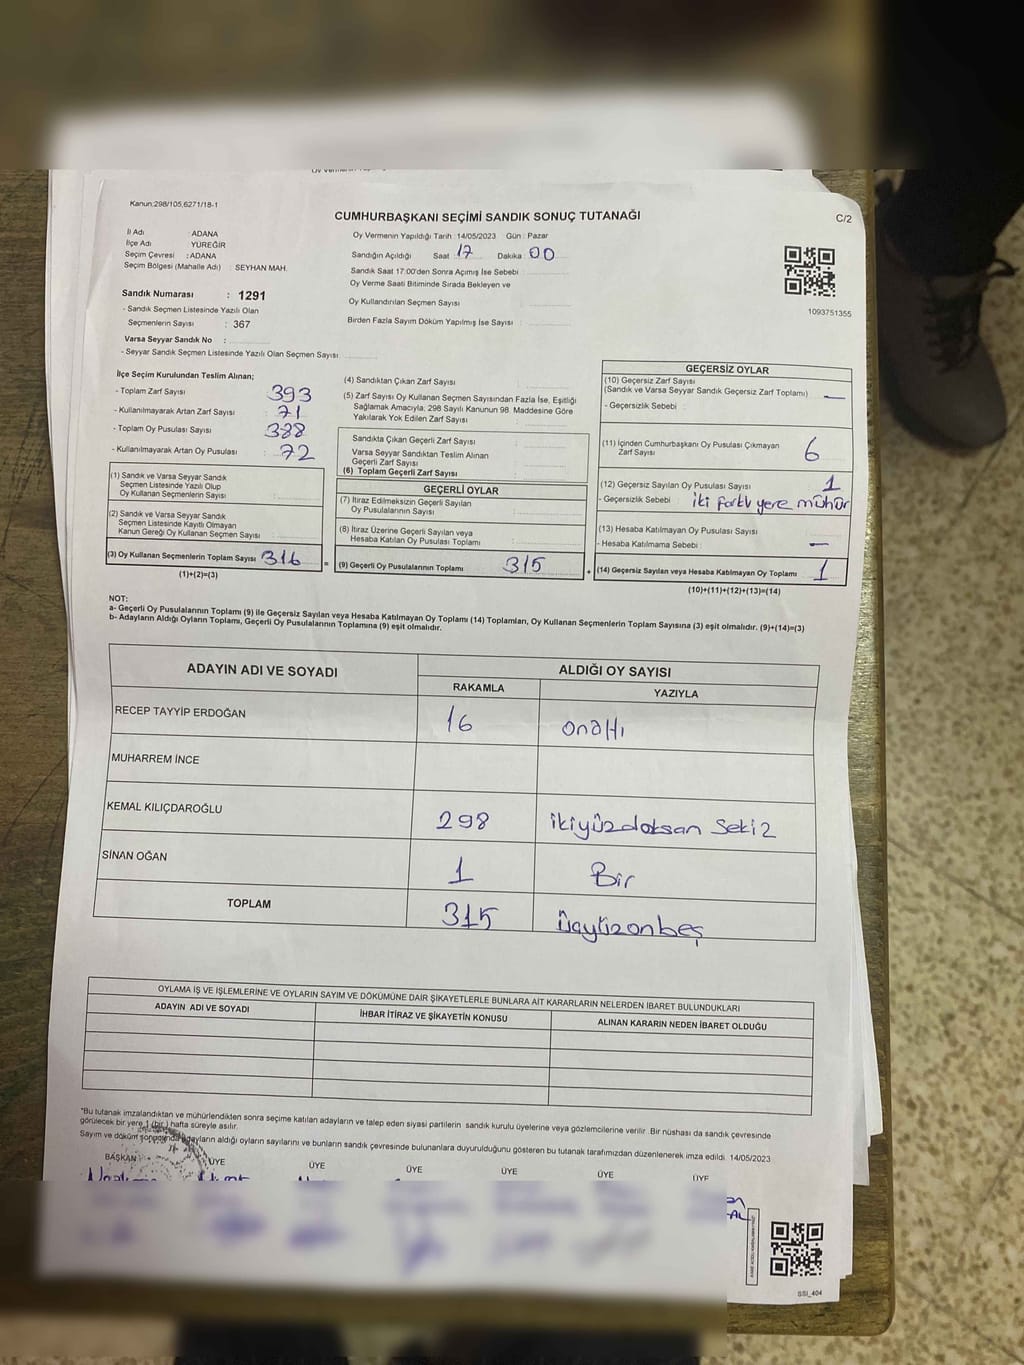 Kanun:298/105,6271/18-1
CUMHURBAŞKANI SEÇİMİ SANDIK SONUÇ TUTANAĞI
C/2
İl Adı : ADANA
İlçe Adı : YÜREĞİR
Seçim Çevresi : ADANA
Seçim Bölgesi (Mahalle Adı) : SEYHAN MAH.
Oy Vermenin Yapıldığı Tarih : 14/05/2023 Gün : Pazar
Sandığın Açıldığı Saat 17 Dakika 00
Sandık Saat 17:00'den Sonra Açımış İse Sebebi :
Oy Verme Saati Bitiminde Sırada Bekleyen ve
Oy Kullandırılan Seçmen Sayısı
Birden Fazla Sayım Döküm Yapılmış İse Sayısı :
1093751355
Sandık Numarası : 1291
- Sandık Seçmen Listesinde Yazılı Olan
Seçmenlerin Sayısı : 367
Varsa Seyyar Sandık No :
- Seyyar Sandık Seçmen Listesinde Yazılı Olan Seçmen Sayısı
İlçe Seçim Kurulundan Teslim Alınan;
- Toplam Zarf Sayısı : 393
- Kullanılmayarak Artan Zarf Sayısı : 71
- Toplam Oy Pusulası Sayısı : 388
- Kullanılmayarak Artan Oy Pusulası : 72
(1) Sandık ve Varsa Seyyar Sandık
Seçmen Listesinde Yazılı Olup
Oy Kullanan Seçmenlerin Sayısı :
(2) Sandık ve Varsa Seyyar Sandık
Seçmen Listesinde Kayıtlı Olmayan
Kanun Gereği Oy Kullanan Seçmen Sayısı :
(3) Oy Kullanan Seçmenlerin Toplam Sayısı 316 =
(1)+(2)=(3)
(4) Sandıktan Çıkan Zarf Sayısı :
(5) Zarf Sayısı Oy Kullanan Seçmen Sayısından Fazla İse, Eşitliği
Sağlamak Amacıyla; 298 Sayılı Kanunun 98. Maddesine Göre
Yakılarak Yok Edilen Zarf Sayısı :
Sandıkta Çıkan Geçerli Zarf Sayısı :
Varsa Seyyar Sandıktan Teslim Alınan
Geçerli Zarf Sayısı :
(6) Toplam Geçerli Zarf Sayısı :
GEÇERLİ OYLAR
(7) İtiraz Edilmeksizin Geçerli Sayılan
Oy Pusulalarının Sayısı :
(8) İtiraz Üzerine Geçerli Sayılan veya
Hesaba Katılan Oy Pusulası Toplamı :
(9) Geçerli Oy Pusulalarının Toplamı 315 +
GEÇERSİZ OYLAR
(10) Geçersiz Zarf Sayısı
(Sandık ve Varsa Seyyar Sandık Geçersiz Zarf Toplamı) : —
- Geçersizlik Sebebi :
(11) İçinden Cumhurbaşkanı Oy Pusulası Çıkmayan
Zarf Sayısı : 6
(12) Geçersiz Sayılan Oy Pusulası Sayısı : 1
- Geçersizlik Sebebi : iki farklı yere mühür
(13) Hesaba Katılmayan Oy Pusulası Sayısı :
- Hesaba Katılmama Sebebi : —
(14) Geçersiz Sayılan veya Hesaba Katılmayan Oy Toplamı 1
(10)+(11)+(12)+(13)=(14)
NOT:
a- Geçerli Oy Pusulalarının Toplamı (9) ile Geçersiz Sayılan veya Hesaba Katılmayan Oy Toplamı (14) Toplamları, Oy Kullanan Seçmenlerin Toplam Sayısına (3) eşit olmalıdır. (9)+(14)=(3)
b- Adayların Aldığı Oyların Toplamı, Geçerli Oy Pusulalarının Toplamına (9) eşit olmalıdır.
ADAYIN ADI VE SOYADI ALDIĞI OY SAYISI
RAKAMLA YAZIYLA
RECEP TAYYİP ERDOĞAN 16 onaltı
MUHARREM İNCE
KEMAL KILIÇDAROĞLU 298 ikiyüzdoksan sekiz
SİNAN OĞAN 1 Bir
TOPLAM 315 üçyüzonbeş
OYLAMA İŞ VE İŞLEMLERİNE VE OYLARIN SAYIM VE DÖKÜMÜNE DAİR ŞİKAYETLERLE BUNLARA AİT KARARLARIN NELERDEN İBARET BULUNDUKLARI
ADAYIN ADI VE SOYADI İHBAR İTİRAZ VE ŞİKAYETİN KONUSU ALINAN KARARIN NEDEN İBARET OLDUĞU
"Bu tutanak imzalandıktan ve mühürlendikten sonra seçime katılan adayların ve talep eden siyasi partilerin sandık kurulu üyelerine veya gözlemcilerine verilir. Bir nüshası da sandık çevresinde
görülecek bir yere 1 (bir) hafta süreyle asılır.
Sayım ve döküm sonucunda adayların aldığı oyların sayılarını ve bunların sandık çevresinde bulunanlara duyurulduğunu gösteren bu tutanak tarafımızdan düzenlenerek imza edildi. 14/05/2023
BAŞKAN ÜYE ÜYE ÜYE ÜYE ÜYE ÜYE
SSI_404